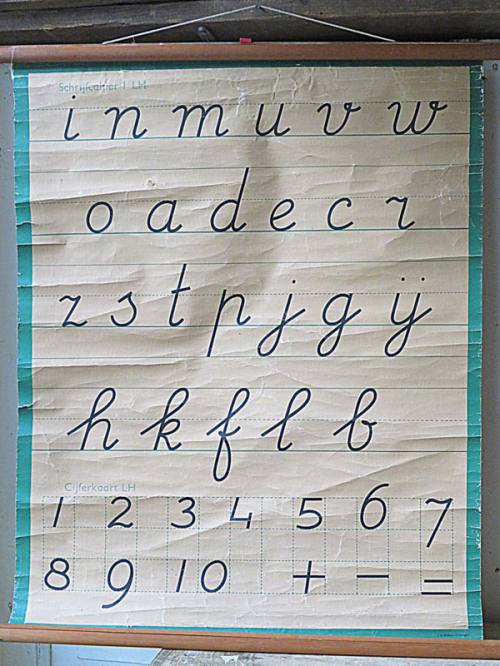 Schrijfcahier 1 LH
i n m u v w
o a d e c r
z s t p j g ij
h k f l b
Cijferkaart LH
1 2 3 4 5 6 7
8 9 10 + - =